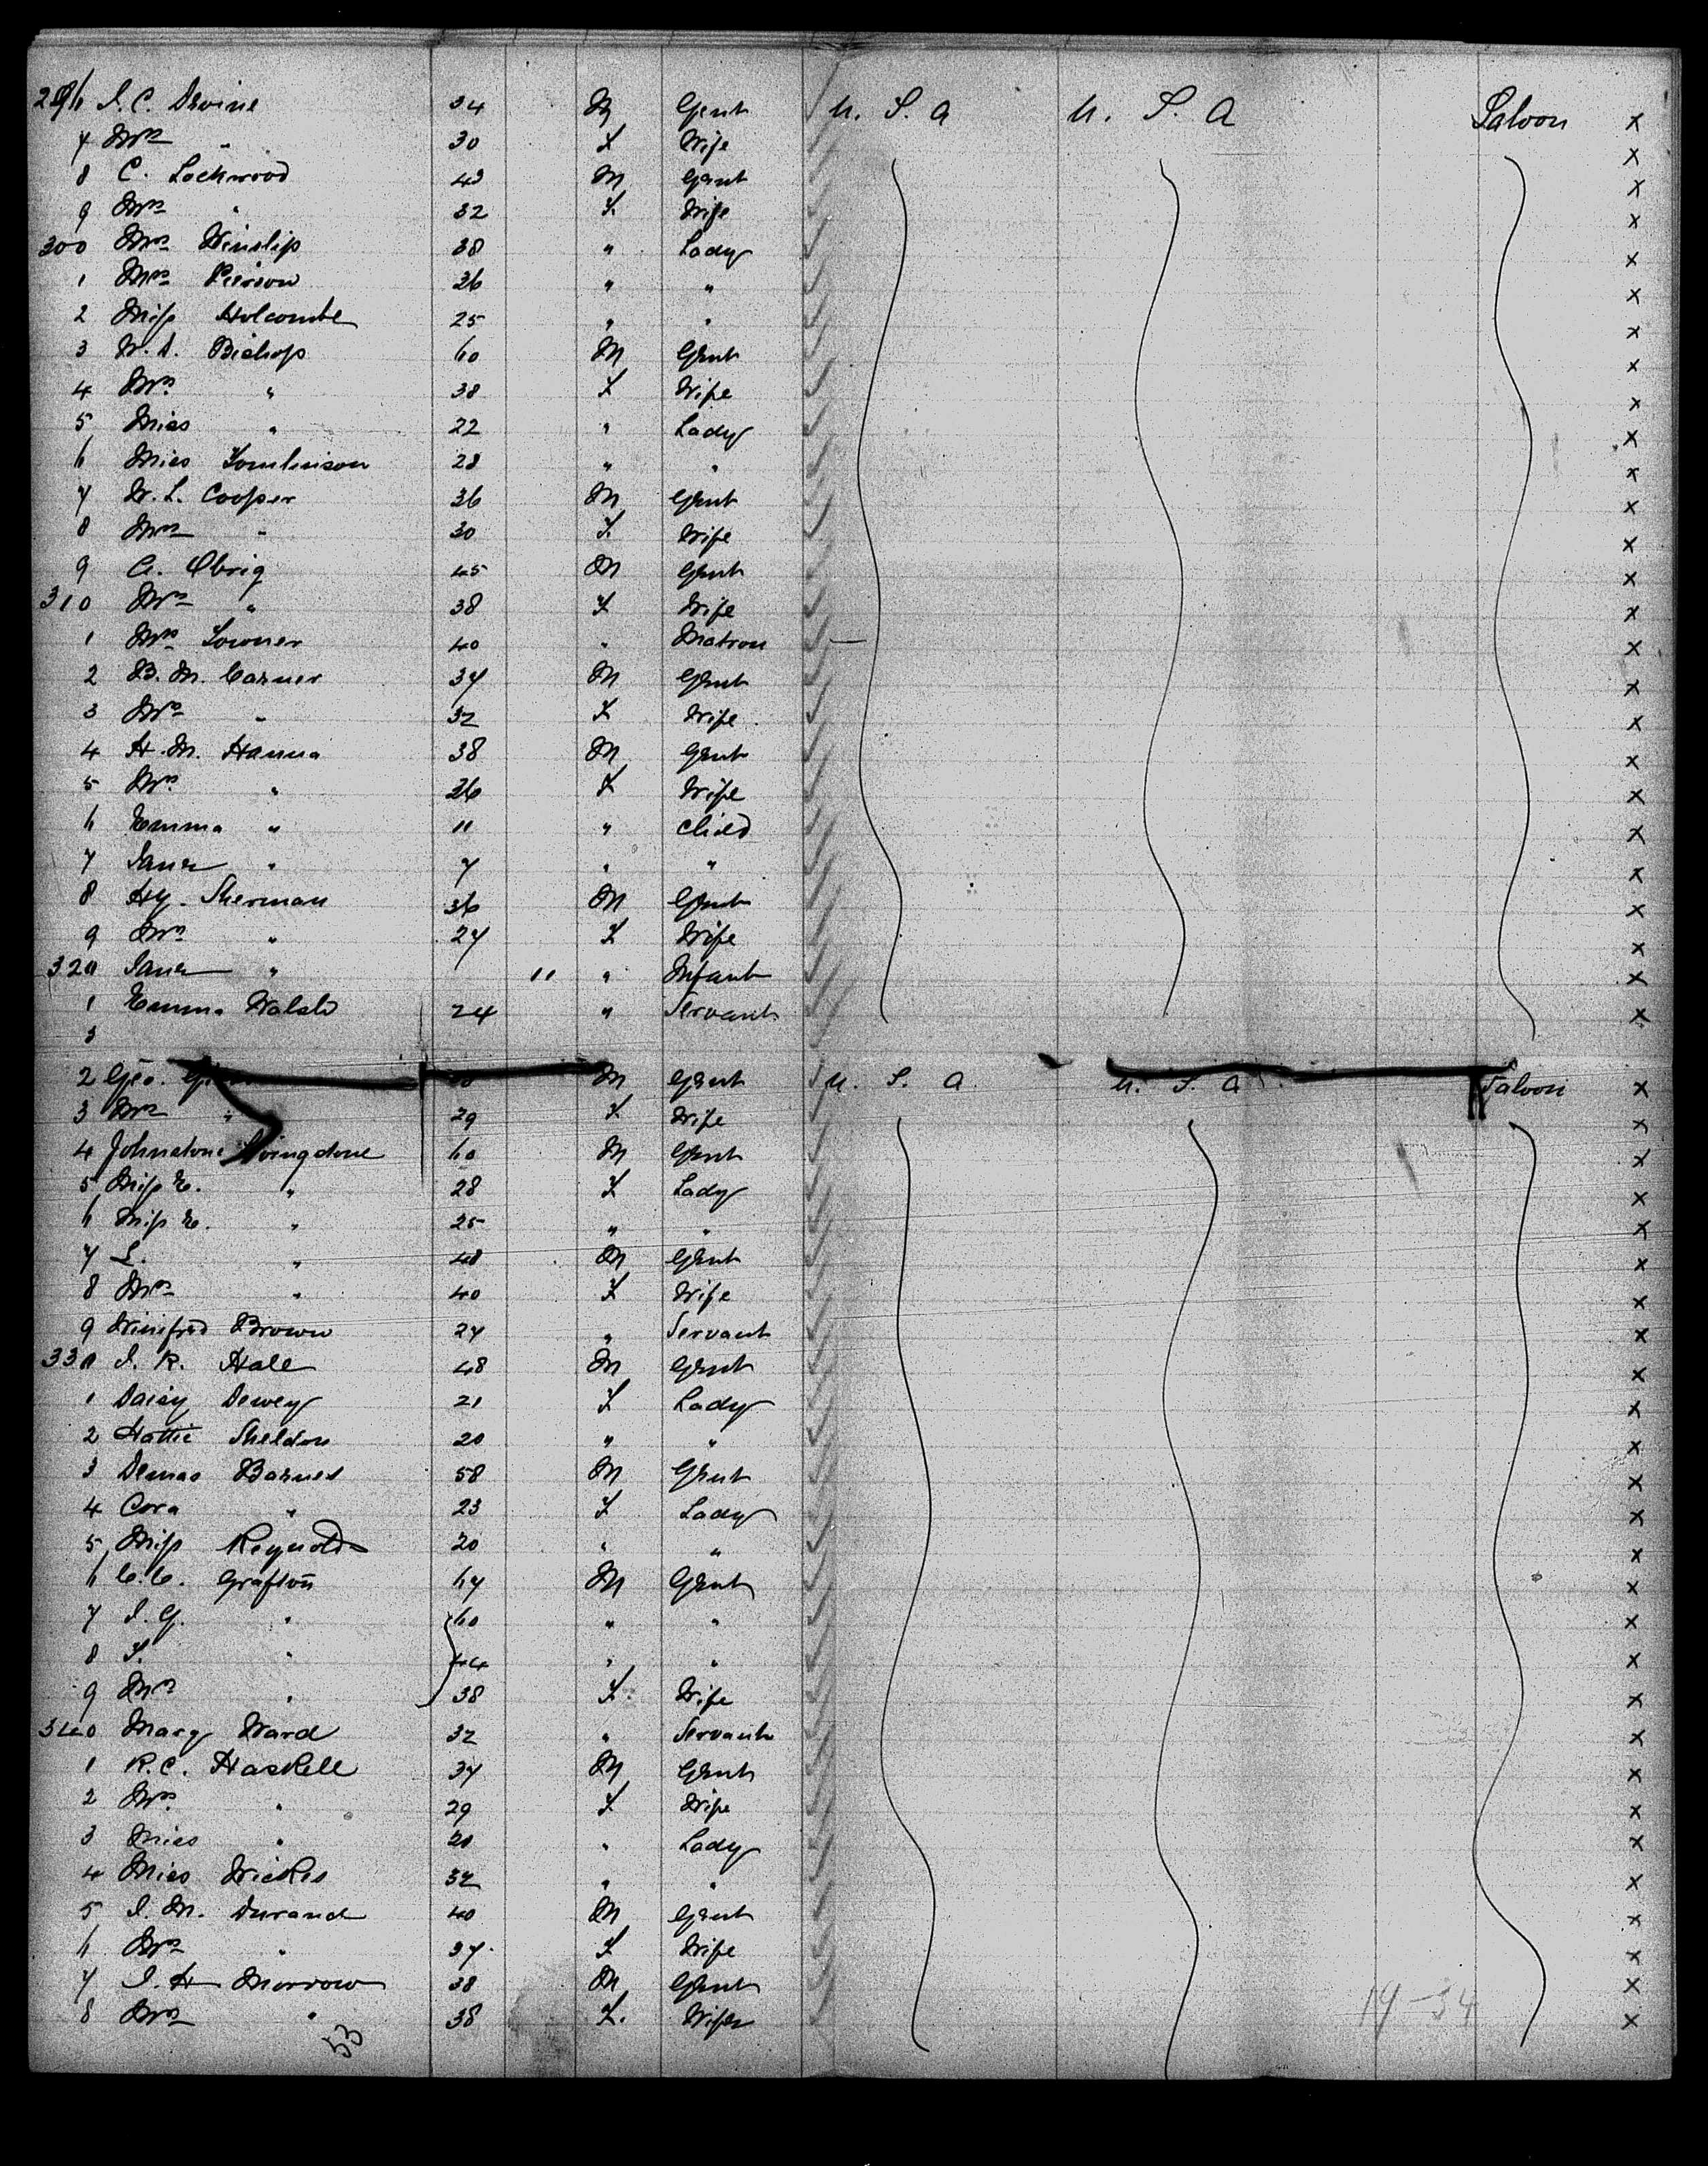 296 I. C. Devine 34 M Gent U. S. A U. S. A Saloon x
7 Mrs " 30 F Wife x
8 C. Lockwood 43 M Gent x
9 Mrs " 32 F. Wife x
300 Mrs Winslip 38 " Lady x
1 Mrs Pierson 36 " " x
2 Miss Holcombe 25 " " x
3 W. D. Bishop 60 M Gent x
4 Mrs " 38 F Wife x
5 Miss " 22 " Lady x
6 Miss Tomlinson 28 " " x
7 W. L. Cooper 36 M Gent x
8 Mrs " 30 F. Wife x
9 A. Obrig 45 M Gent x
310 Mrs " 38 F Wife x
1 Mrs Towner 40 " Matron x
2 B. M. Carner 37 M Gent x
3 Mrs " 32 F Wife x
4 H. M. Hanna 38 M Gent x
5 Mrs " 36 F Wife x
6 Emma " 11 " Child x
7 Jane " 7 " " x
8 Hy. Sherman 36 M Gent x
9 Mrs " 27 F Wife x
320 Jane " 11 " Infant x
1 Emma Walsh 24 " Servant x
3
2 Geo. M Gent U. S. A. U. S. A Saloon x
3 Mrs " 29 F. Wife x
4 Johnstone Livingstone 60 M Gent x
5 Miss E. " 28 F Lady x
6 Miss E. " 25 " " x
7 L. " 48 M Gent x
8 Mrs " 40 F Wife x
9 Winifred Brown 24 " Servant x
330 I. R. Hall 48 M Gent x
1 Daisy Dewey 21 F Lady x
2 Hattie Sheldon 20 " " x
3 Demas Barnes 58 M Gent x
4 Cora " 23 F Lady x
5 Miss Reynolds 20 " " x
6 C. C. Grafton 67 M Gent x
7 I. G. " 60 " " x
8 F. " 44 " " x
9 Mrs " 38 F. Wife x
340 Mary Ward 32 " Servant x
1 R. C. Haskell 37 M Gent x
2 Mrs " 29 F Wife x
3 Miss " 20 " Lady x
4 Miss Wickes 32 " " x
5 I. M. Durand 40 M Gent x
6 Mrs " 37 F Wife x
7 I. H Morrow 38 M Gent x
8 Mrs " 38 F. Wife x
53
19-34